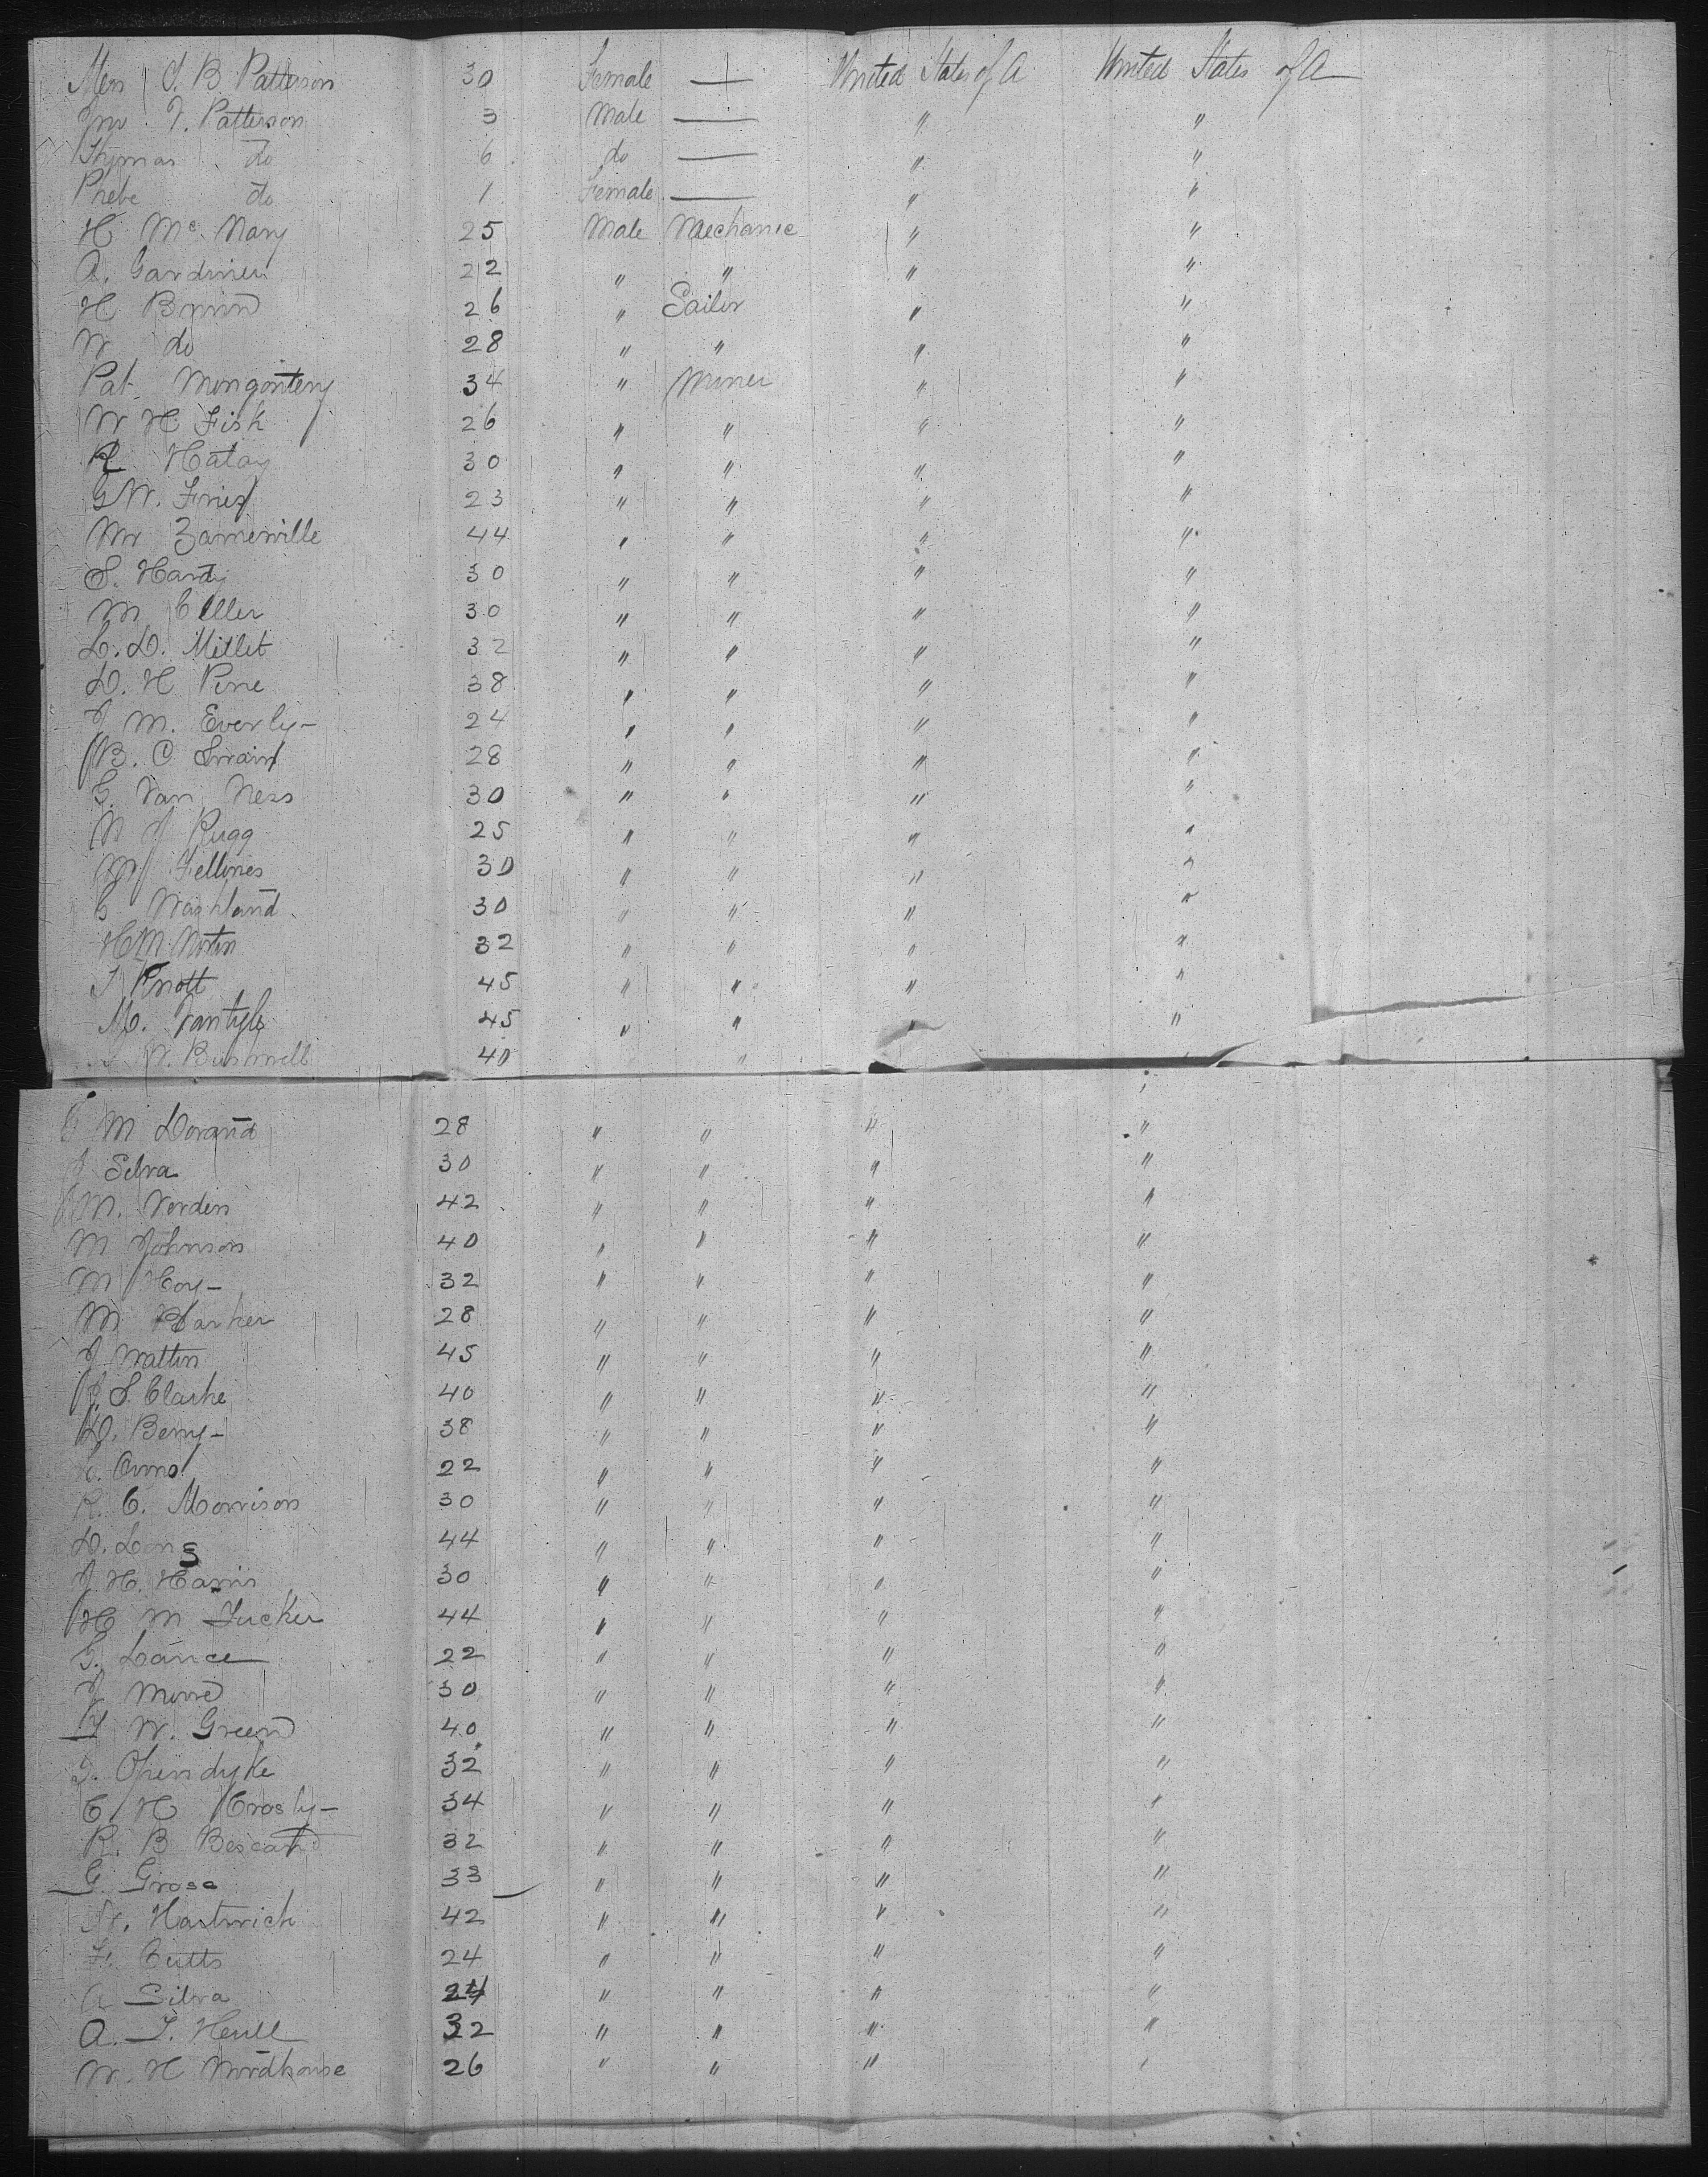 S. B. Patterson 30 Female — United States of A United States of A
T. Patterson 3 Male — " "
do 6 do — " "
Phebe do 1 Female — " "
H Mc Nary 25 Male Mechanic " "
A. Gardiner 22 " " " "
H 26 " Sailor " "
W do 28 " " " "
Pat Mongontery 34 " Miner " "
W H Fisk 26 " " " "
R Hatay 30 " " " "
G W. 23 " " " "
Mr 44 " " " "
S. Hardy 30 " " " "
M Eller 30 " " " "
L. D. Millet 32 " " " "
D. H Pine 38 " " " "
J M. Everly 24 " " " "
B. C Swain 28 " " " "
G. Van Ness 30 " " " "
M J Rugg 25 " " " "
Fellows 30 " " " "
C Washland 30 " " " "
H M Norton 32 " " " "
J Knott 45 " " " "
M. 45 " " " "
W. Bushnell 40 "
M Dorand 28 " " " "
J Silva 30 " " " "
M. Verden 42 " " " "
M Johnson 40 " " " "
M Hoy 32 " " " "
M Barker 28 " " " "
J Watton 45 " " " "
J. S. Clarke 40 " " " "
D. Berry 38 " " " "
22 " " " "
R. C. Morrison 30 " " " "
D. Long 44 " " " "
J. H. Harris 30 " " " "
H M Tucker 44 " " " "
G. Lance 22 " " " "
J Moore 30 " " " "
W. Green 40 " " " "
Opendyke 32 " " " "
C. H Crosly 34 " " " "
R. B 32 " " " "
G. Grose 33 " " " "
N. Hartwick 42 " " " "
F. Cutts 24 " " " "
A Silva 24 " " " "
A. T. Hull 32 " " " "
W. H Woodhouse 26 " " " "